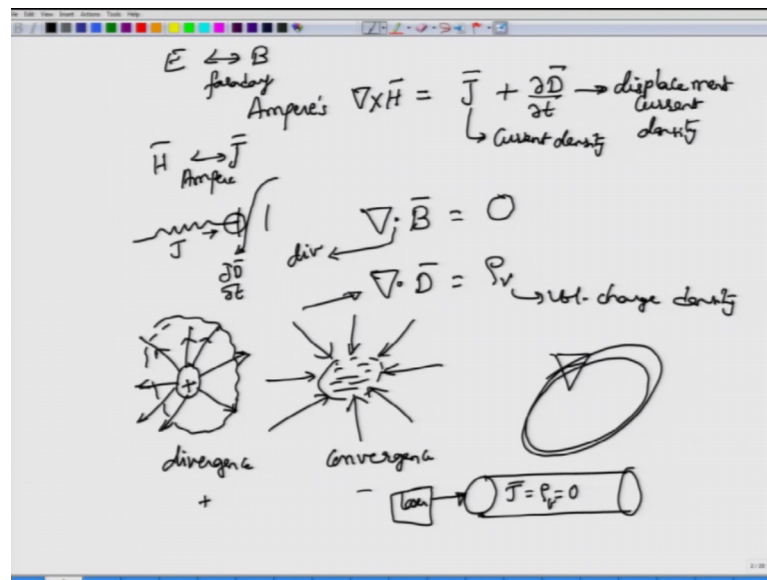 File Edit View Insert Actions Tools Help
E ↔ B
faraday
Ampere's ∇×H̄ = J̄ + ∂D̄/∂t → displacement current density
↳ Current density
H̄ ↔ J̄
Ampere
J
∂D̄/∂t
∇· B̄ = 0
div
∇· D̄ = ρv
↳ vol. charge density
+
divergence
convergence
+
−
laser
J̄ = ρv = 0
2/20